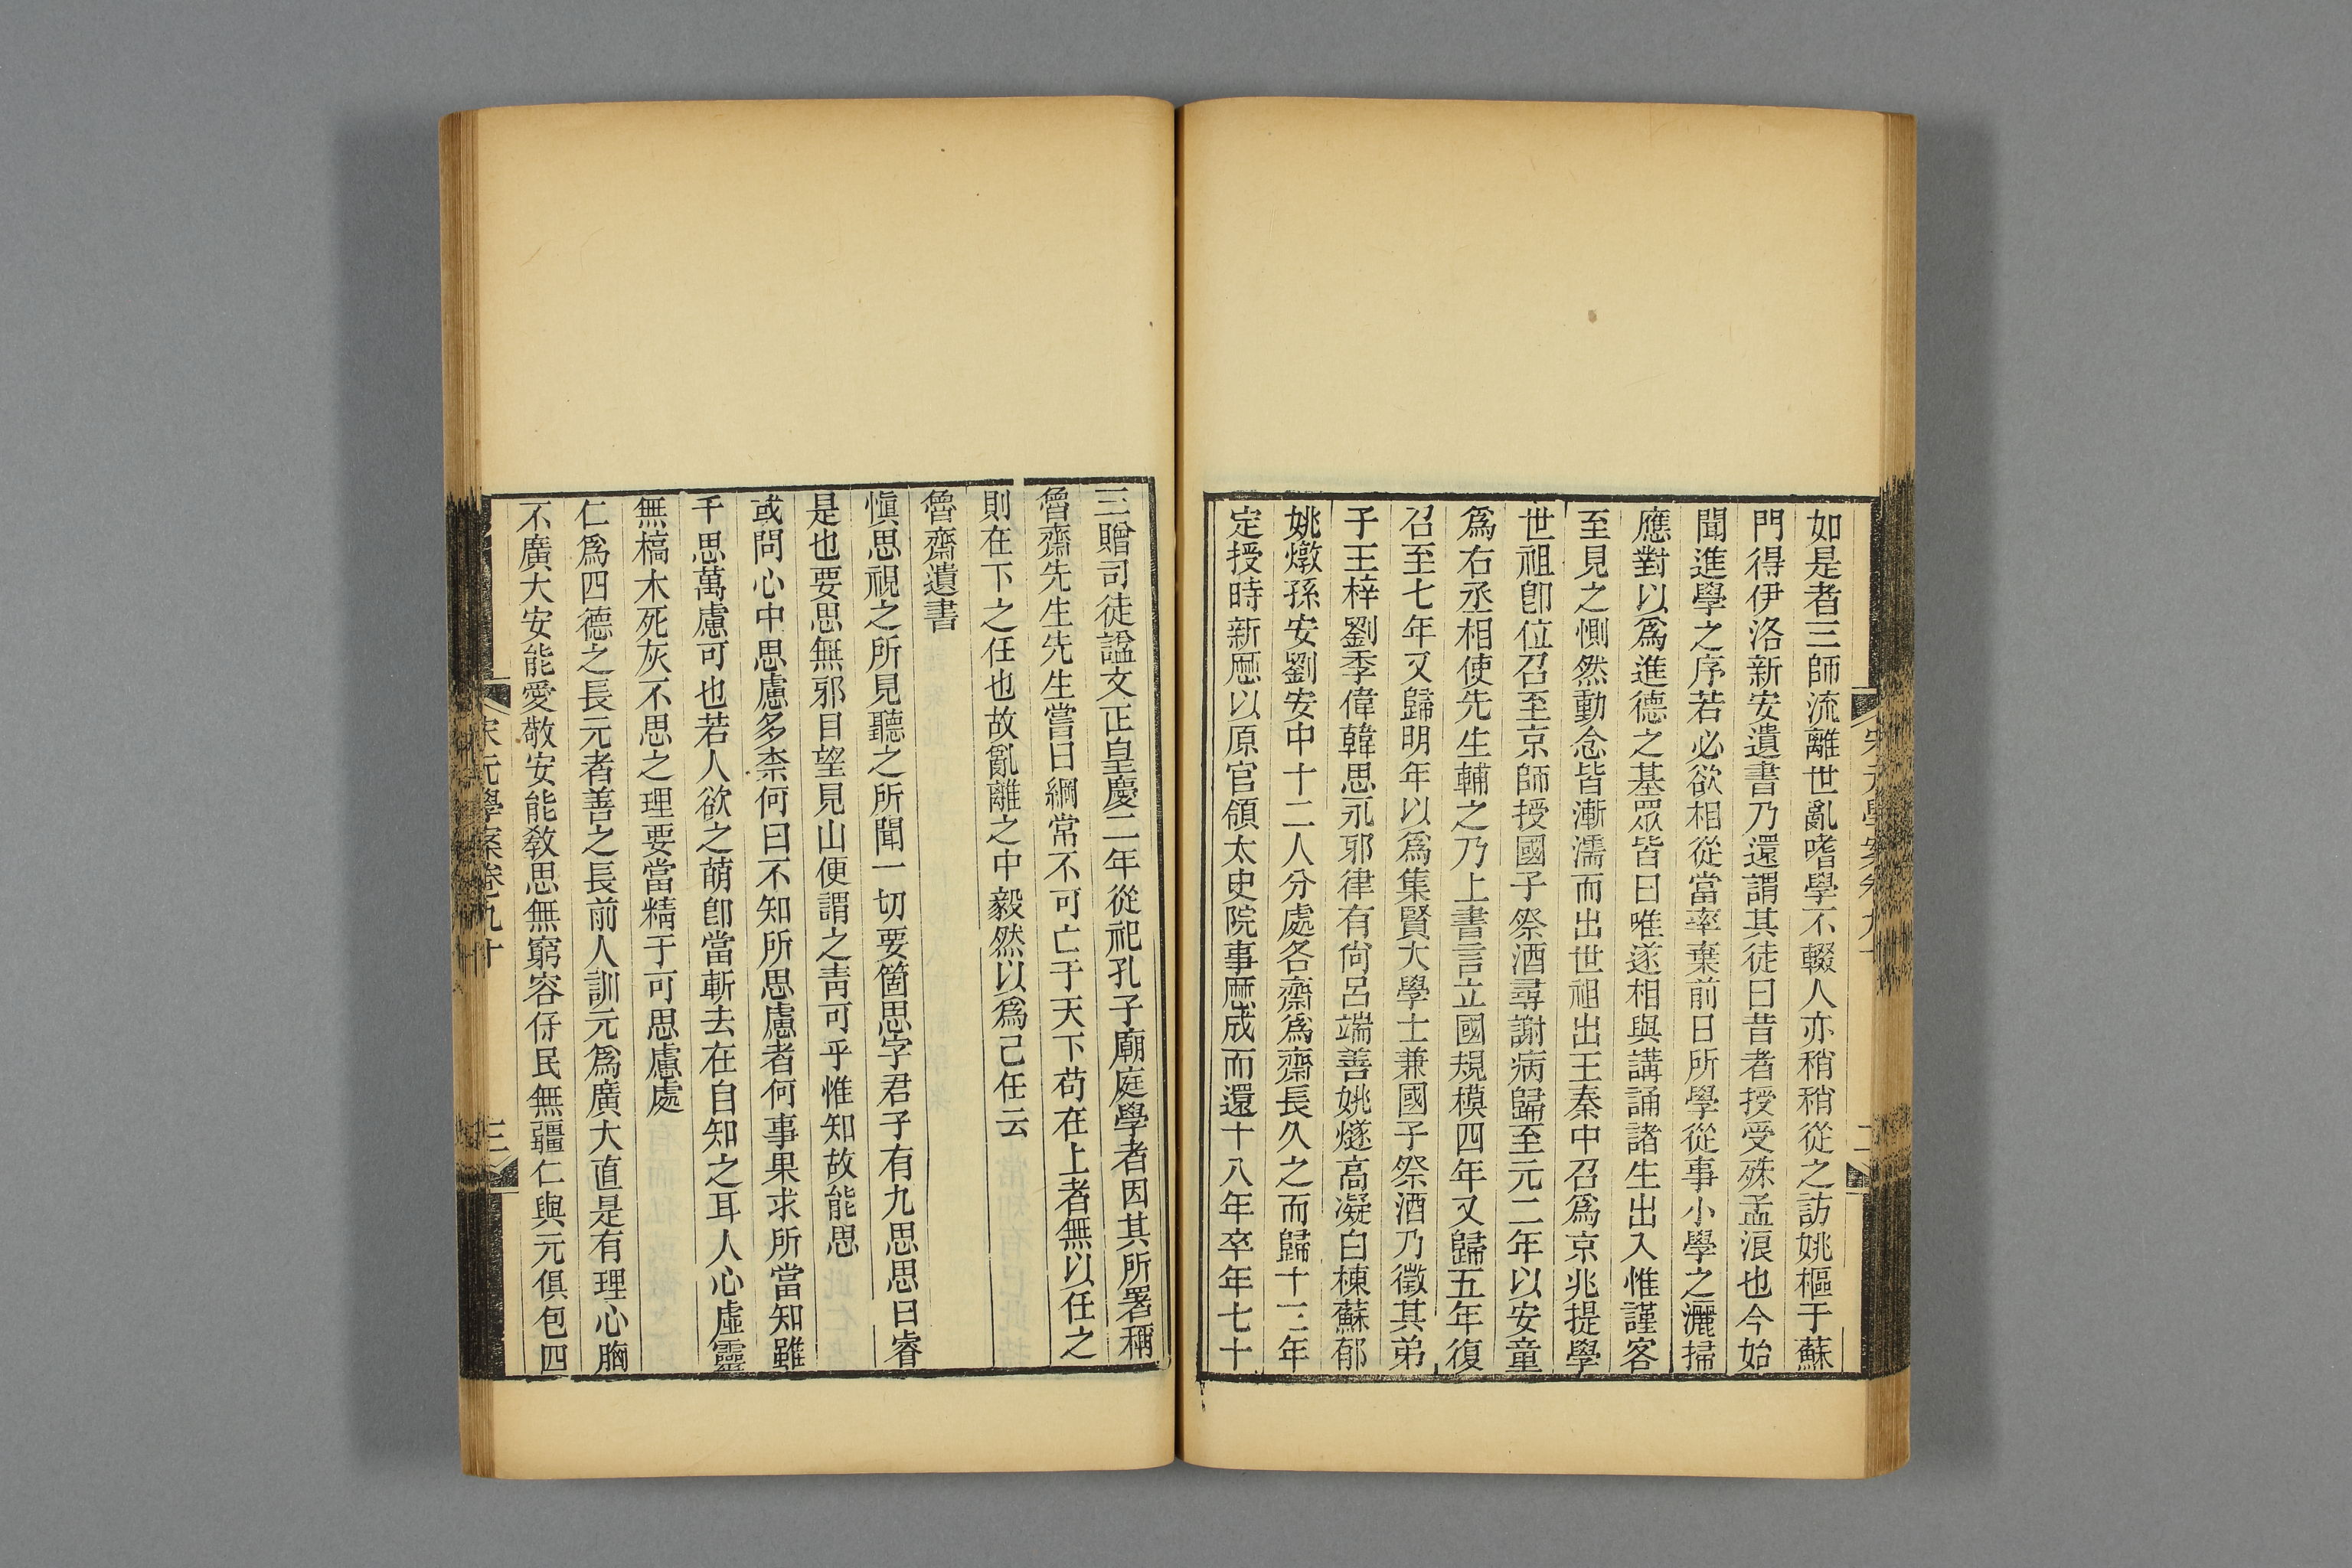 如是者三師流離世亂嗜學不輟人亦稍稍從之訪姚樞于蘇
門得伊洛新安遺書乃還謂其徒曰昔者授受殊孟浪也今始
聞進學之序若必欲相從當率棄前日所學從事小學之灑掃
應對以爲進德之基眾皆曰唯遂相與講誦諸生出入惟謹客
至見之惻然動念皆漸濡而出世祖出王秦中召爲京兆提學
世祖卽位召至京師授國子祭酒尋謝病歸至元二年以安童
爲右丞相使先生輔之乃上書言立國規模四年又歸五年復
召至七年又歸明年以爲集賢大學士兼國子祭酒乃徵其弟
子王梓劉季偉韓思永邪律有尙呂端善姚燧高凝白棟蘇郁
姚燉孫安劉安中十二人分處各齋爲齋長久之而歸十三年
定授時新厯以原官領太史院事厯成而還十八年卒年七十
三贈司徒諡文正皇慶二年從祀孔子廟庭學者因其所署稱
魯齋先生先生嘗曰綱常不可亡于天下苟在上者無以任之
則在下之任也故亂離之中毅然以爲己任云
魯齋遺書
愼思視之所見聽之所聞一切要箇思字君子有九思思曰睿
是也要思無邪目望見山便謂之靑可乎惟知故能思
或問心中思慮多柰何曰不知所思慮者何事果求所當知雖
千思萬慮可也若人欲之萌卽當斬去在自知之耳人心虛靈
無槁木死灰不思之理要當精于可思慮處
仁爲四德之長元者善之長前人訓元爲廣大直是有理心胸
不廣大安能愛敬安能敎思無窮容保民無疆仁與元俱包四
宋元學案卷九十
三